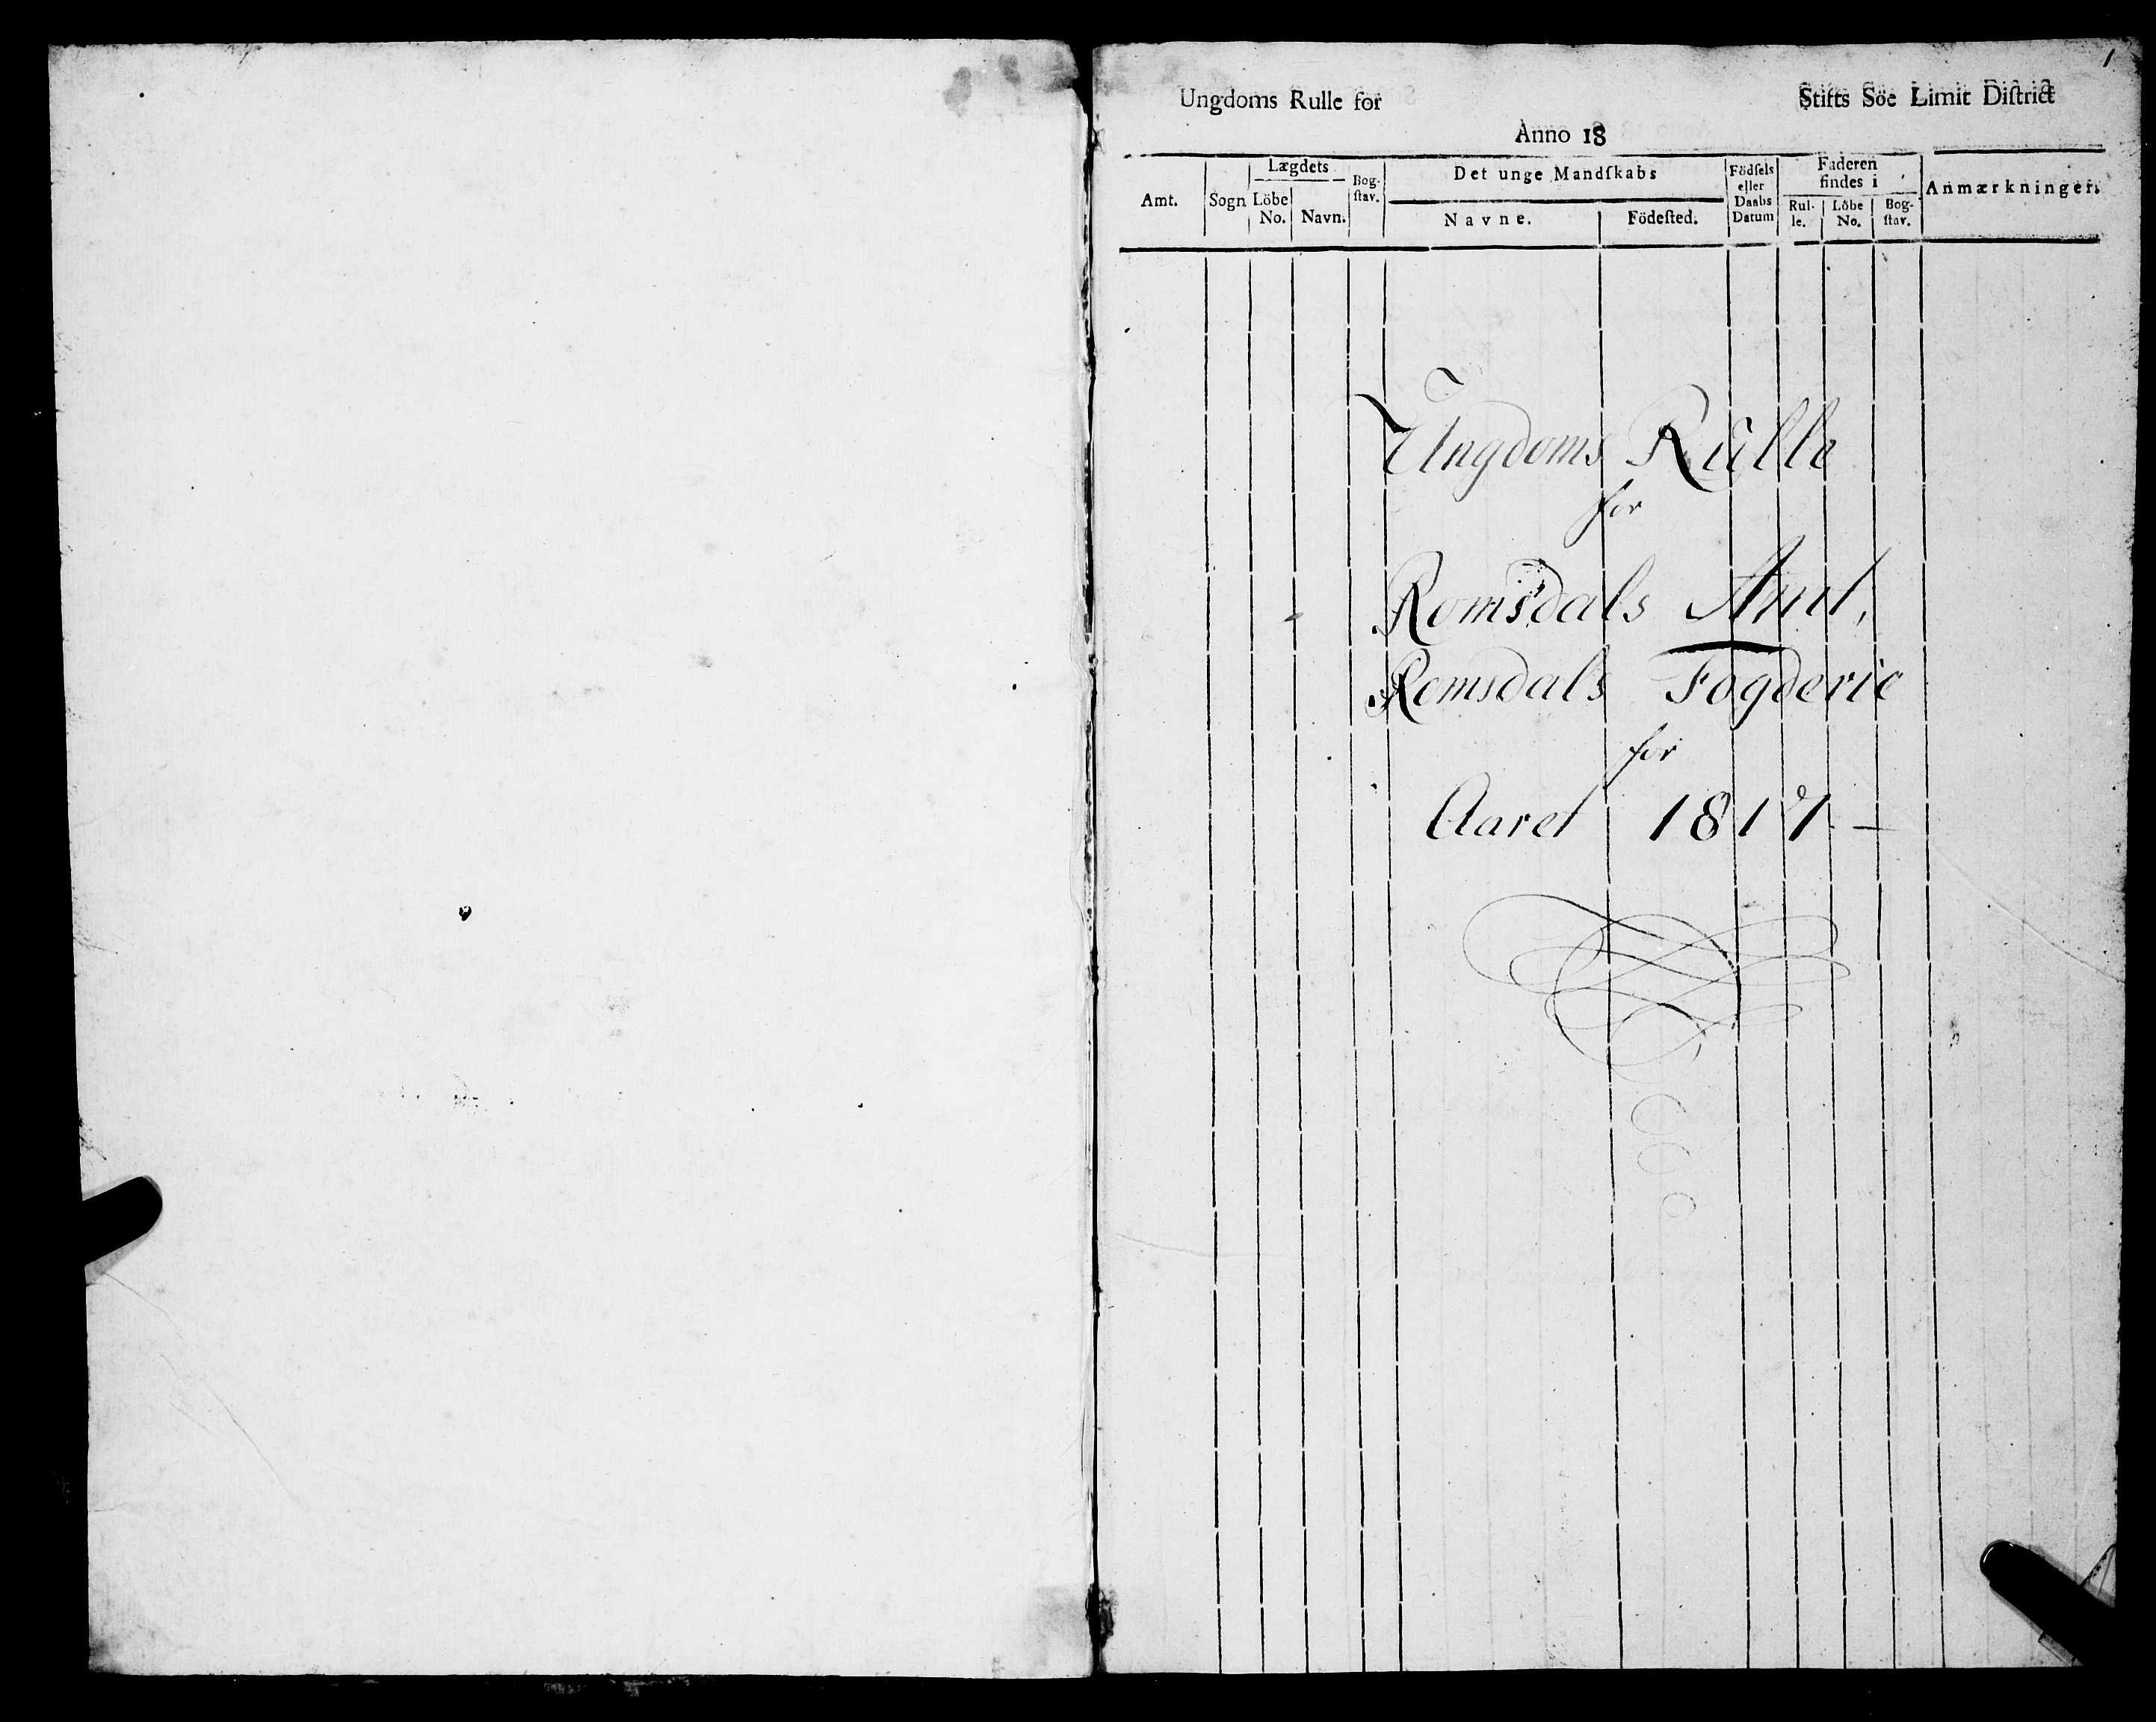 1
Ungdoms Rulle for Stifts Söe Limit Diſtrict
Anno 18
Amt.
Sogn
Lægdets
Löbe No.
Navn.
Bog-
ſtav.
Det unge Mandſkabs
Navne.
Födeſted.
Födſels
eller
Daabs
Datum
Faderen
findes i
Rul-
le.
Löbe
No.
Bog-
ſtav.
Anmærkninger.
Ungdoms Rulle
for
Romsdals Amt,
Romsdals Fogderie
for
Aaret 1817